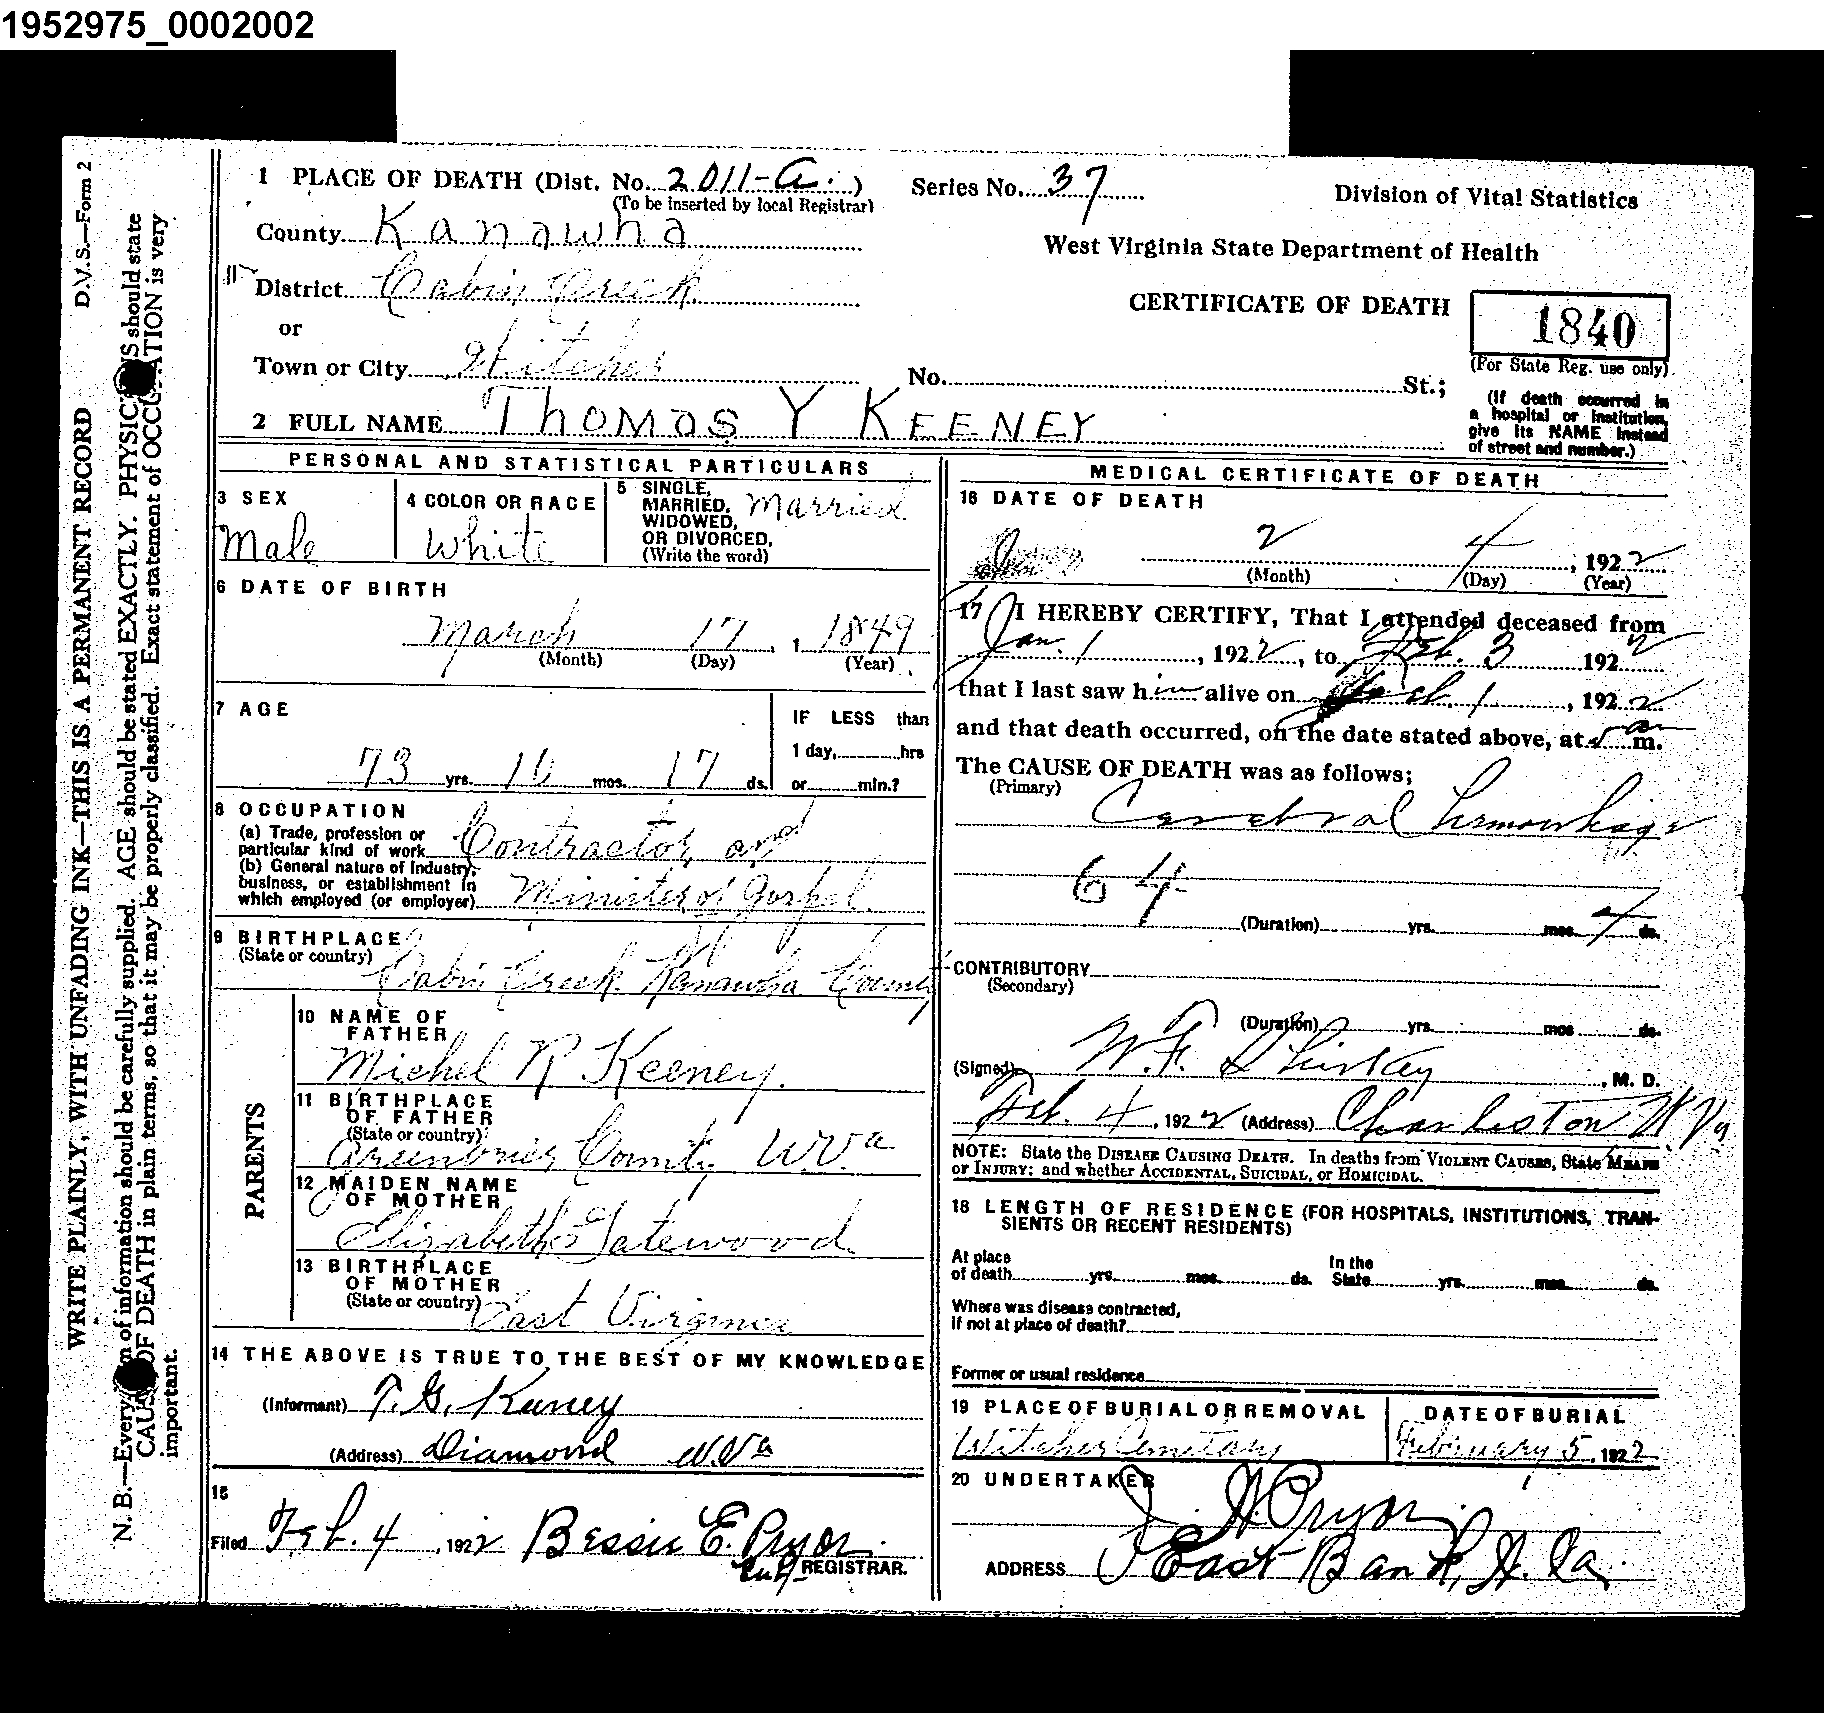 1952975_0002002
D.V.S.—Form 2
WRITE PLAINLY, WITH UNFADING INK—THIS IS A PERMANENT RECORD
N. B.—Every of information should be carefully supplied. AGE should be stated EXACTLY. PHYSIC NS should state
CAUS OF DEATH in plain terms, so that it may be properly classified. Exact statement of OCCU ATION is very
important.
1 PLACE OF DEATH (Dist. No. 2011-a.)
(To be inserted by local Registrar)
Series No. 37
Division of Vital Statistics
County Kanawha
West Virginia State Department of Health
District Cabin Creek
CERTIFICATE OF DEATH
1840
(For State Reg. use only)
or
Town or City Witcher
No. St.;
(If death occurred in
a hospital or institution,
give its NAME instead
of street and number.)
2 FULL NAME THOMAS Y KEENEY
PERSONAL AND STATISTICAL PARTICULARS
3 SEX
Male
4 COLOR OR RACE
White
5 SINGLE,
MARRIED,
WIDOWED,
OR DIVORCED,
(Write the word)
Married
6 DATE OF BIRTH
March 17, 1849
(Month) (Day) (Year)
7 AGE
73 yrs. 10 mos. 17 ds.
IF LESS than
1 day, hrs
or min.?
8 OCCUPATION
(a) Trade, profession or
particular kind of work Contractor and
(b) General nature of Industry,
business, or establishment in
which employed (or employer) Minister of Gospel.
9 BIRTHPLACE
(State or country)
Cabin Creek Kanawha County
PARENTS
10 NAME OF
FATHER
Michel R Keeney.
11 BIRTHPLACE
OF FATHER
(State or country)
Greenbrier County W.Va
12 MAIDEN NAME
OF MOTHER
Elizabeth Gatewood
13 BIRTHPLACE
OF MOTHER
(State or country)
East Virginia
14 THE ABOVE IS TRUE TO THE BEST OF MY KNOWLEDGE
(Informant) T. G. Keeney
(Address) Diamond W.Va
15
Filed Feb. 4, 1922 Bessie E. Pryor
Sub REGISTRAR.
MEDICAL CERTIFICATE OF DEATH
16 DATE OF DEATH
2 4, 1922
(Month) (Day) (Year)
17 I HEREBY CERTIFY, That I attended deceased from
Jan. 1, 1922, to Feb. 3 1922
that I last saw him alive on Feb. 1, 1922
and that death occurred, on the date stated above, at 5 a m.
The CAUSE OF DEATH was as follows;
(Primary)
Cerebral hemorrhage
64
(Duration) yrs. mos. 4 ds.
CONTRIBUTORY
(Secondary)
(Duration) yrs. mos. ds.
(Signed) W. F. Shirkey, M. D.
Feb. 4, 1922 (Address) Charleston W Va
NOTE: State the DISEASE CAUSING DEATH. In deaths from VIOLENT CAUSES, State MEANS
or INJURY; and whether ACCIDENTAL, SUICIDAL, or HOMICIDAL.
18 LENGTH OF RESIDENCE (FOR HOSPITALS, INSTITUTIONS, TRAN-
SIENTS OR RECENT RESIDENTS)
At place
of death yrs. mos. ds.
In the
State yrs. mos. ds.
Where was disease contracted,
if not at place of death?
Former or usual residence
19 PLACE OF BURIAL OR REMOVAL
Witcher Cemetary
DATE OF BURIAL
February 5, 1922
20 UNDERTAKER
J. H. Pryor
ADDRESS East Bank, W. Va.